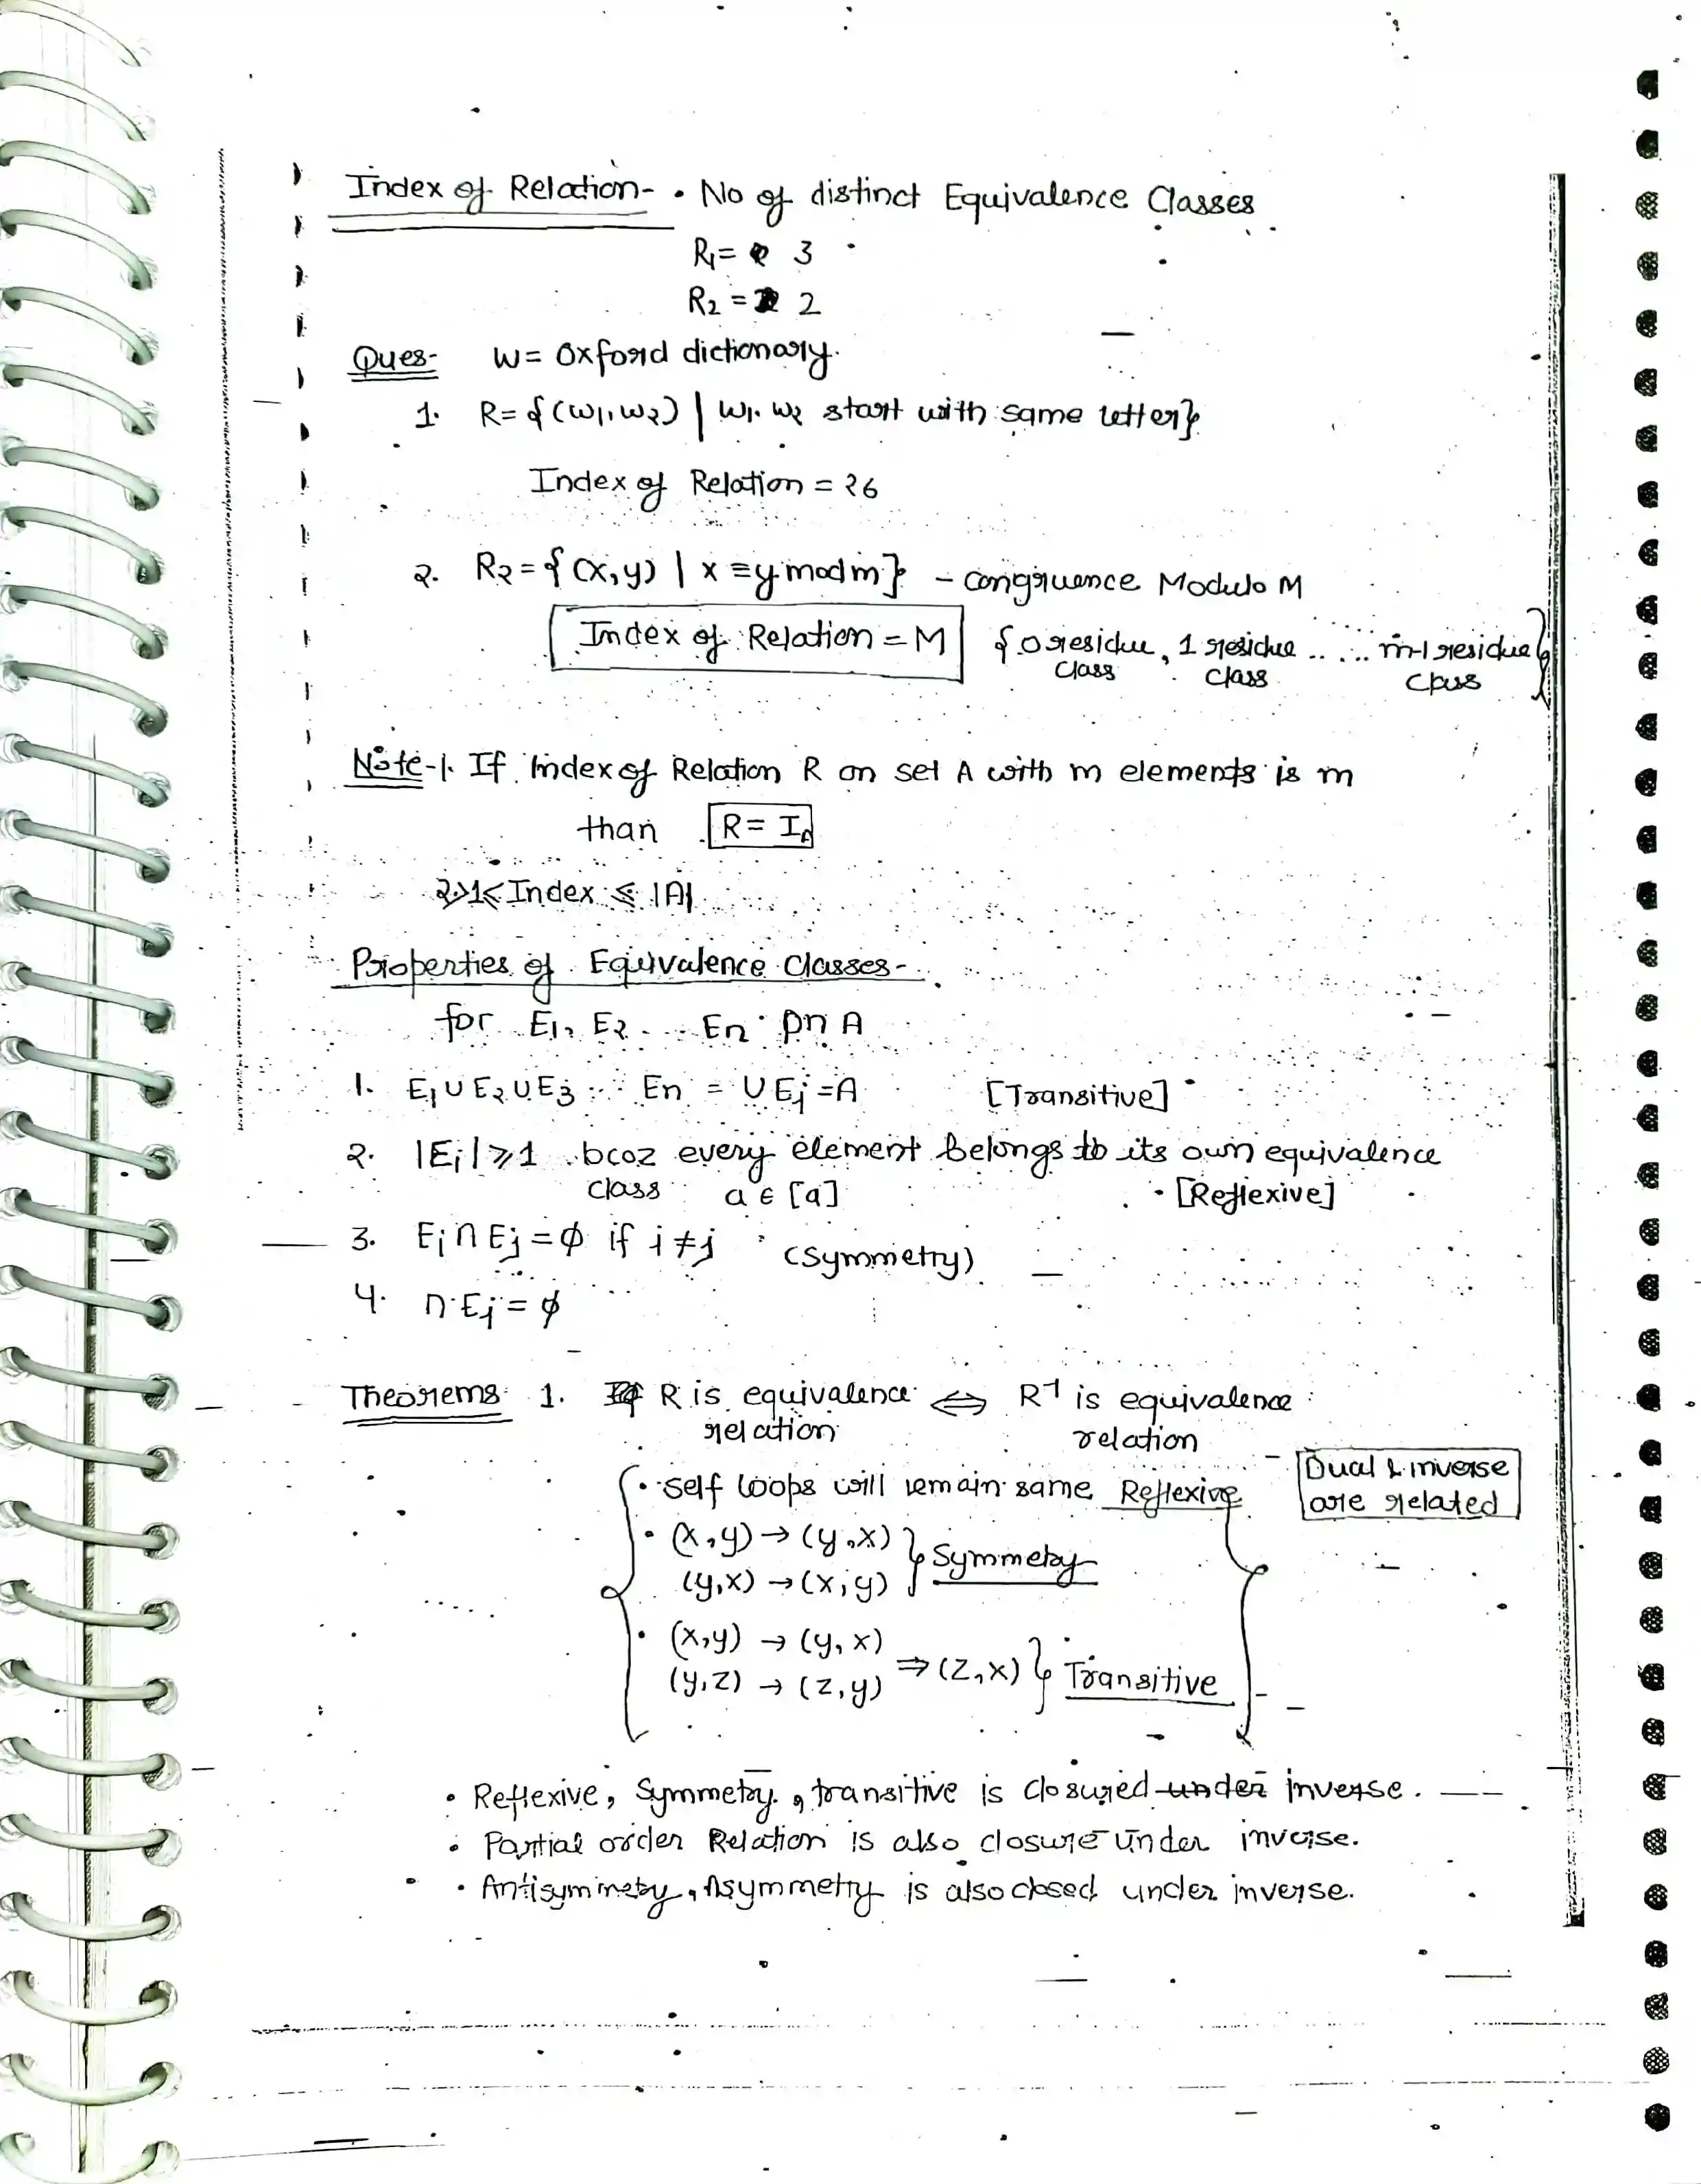 Index of Relation- • No of distinct Equivalence Classes
R₁= 3
R₂ = 2
Ques- W= Oxford dictionary.
1. R= {(w₁,w₂) | w₁. w₂ start with same letter}
Index of Relation = 26
2. R₂ = {(x,y) | x ≡ y mod m} - congruence Modulo M
Index of Relation = M {0 residue class, 1 residue class ..... m-1 residue class}
Note-1. If Index of Relation R on set A with m elements is m
than R = I_A
2.) 1 ≤ Index ≤ |A|
Properties of Equivalence Classes-
for E₁, E₂ .... En on A
1. E₁ ∪ E₂ ∪ E₃ ... En = ∪ Ei = A [Transitive]
2. |Ei| ⩾ 1 bcoz every element belongs to its own equivalence
class a ∈ [a] • [Reflexive]
3. Ei ∩ Ej = ϕ if i ≠ j (Symmetry)
4. ∩ Ei = ϕ
Theorems 1. R is equivalence relation ⟺ R⁻¹ is equivalence relation
• self loops will remain same Reflexive
- Dual & inverse are related
• (x,y) → (y,x)
(y,x) → (x,y) } Symmetry
• (x,y) → (y,x)
(y,z) → (z,y) ⇒ (z,x) } Transitive
• Reflexive, Symmetry, transitive is closured under inverse.
• Partial order Relation is also closure under inverse.
• Antisymmetry, Asymmetry is also closed under inverse.